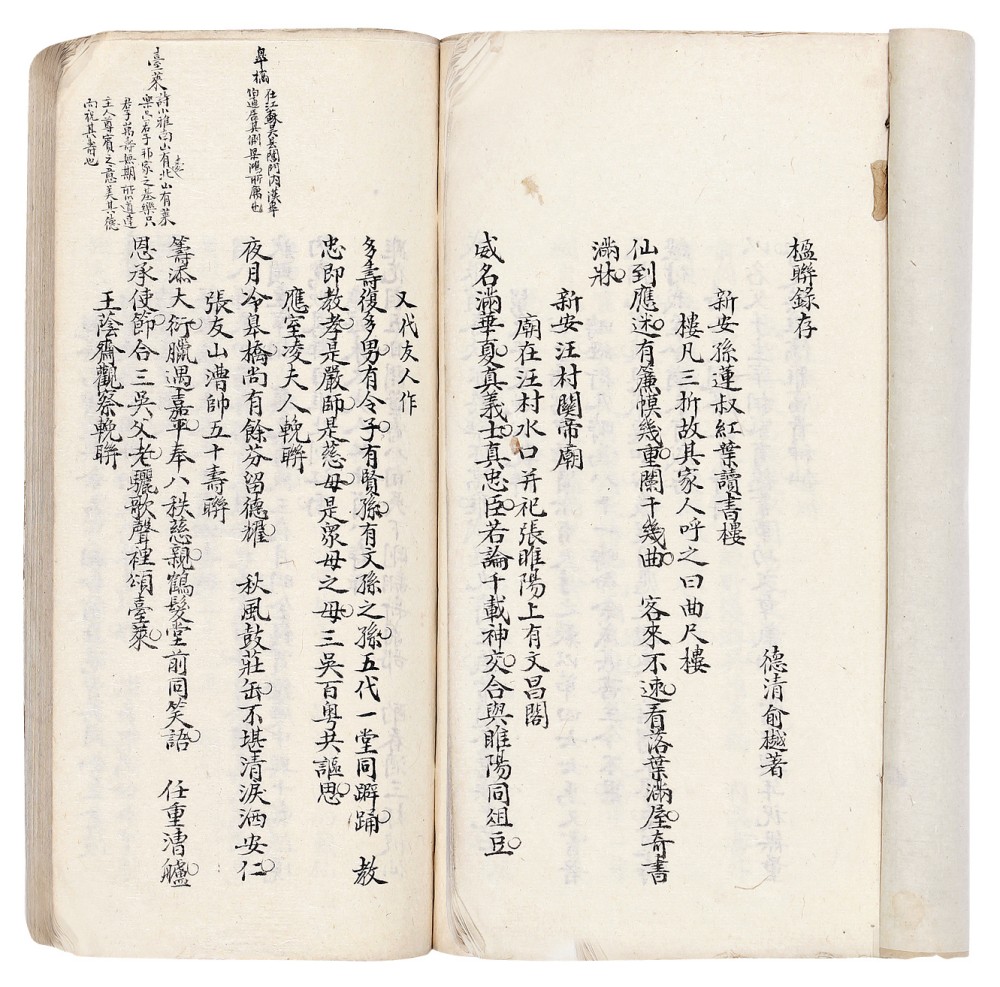 楹聯錄存
德清俞樾著
新安孫蓮叔紅葉讀書樓
樓凡三折故其家人呼之曰曲尺樓
仙到應迷有簾幙幾重闌干幾曲 客來不速看落葉滿屋奇書
滿牀
新安汪村關帝廟
廟在汪村水口并祀張睢陽上有文昌閣
威名滿華夏真義士真忠臣若論千載神交合與睢陽同俎豆
又代友人作
多壽復多男有令子有賢孫有文孫之孫五代一堂同躃踊 教
忠即教孝是嚴師是慈母是眾母之母三吳百粵共謳思
應室凌夫人輓聯
夜月冷皋橋尚有餘芬留德耀 秋風鼓莊缶不堪清淚洒安仁
張友山漕帥五十壽聯
籌添大衍臘遇嘉平奉八秩慈親鶴髮堂前同笑語 任重漕艫
恩承使節合三吳父老驪歌聲裡頌臺萊
王蔭齋觀察輓聯
皋橋
仕江蘇吳县閶門内漢皋
伯通居其側梁鴻所傭也
臺萊
詩小雅南山有臺北山有萊
樂只君子邦家之基樂只
君子萬壽無期所以道達
主人尊賓之意美其德
而祝其壽也